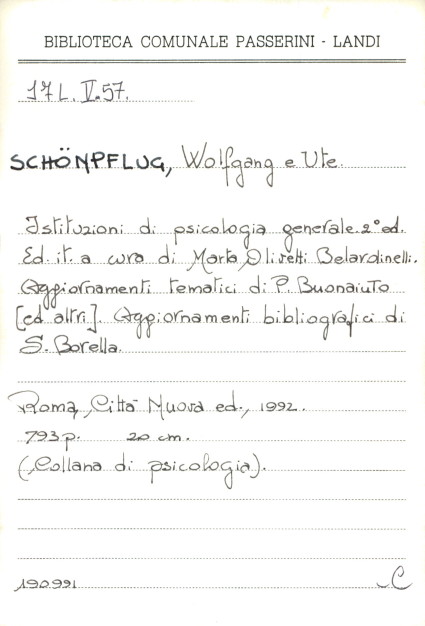 BIBLIOTECA COMUNALE PASSERINI - LANDI
17 L. V. 57.
SCHÖNPFLUG, Wolfgang e Ute.
Istituzioni di psicologia generale. 2° ed.
Ed. it. a cura di Marta Olivetti Belardinelli.
Aggiornamenti tematici di P. Buonaiuto
[ed altri]. Aggiornamenti bibliografici di
S. Borella.
Roma, Città Nuova ed., 1992.
793 p. 20 cm.
(Collana di psicologia).
190991 C